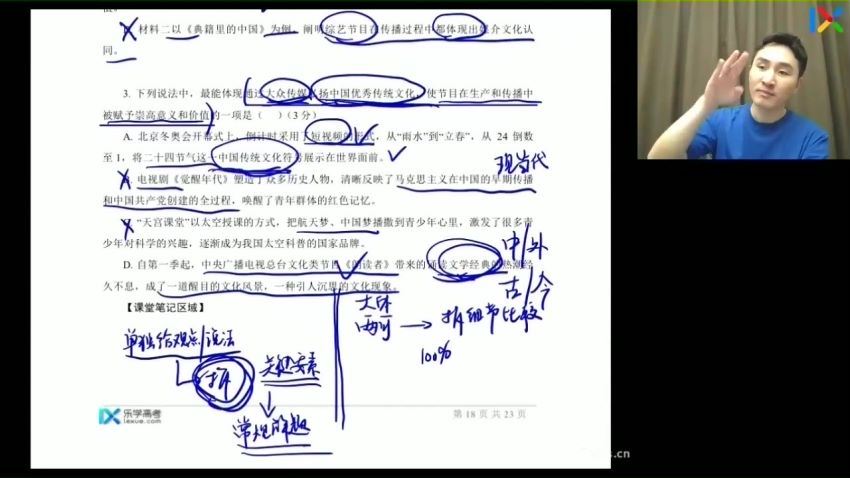 D. 材料二以《典籍里的中国》为例，阐明综艺节目在传播过程中都体现出媒介文化认
同。
3. 下列说法中，最能体现通过大众传媒弘扬中国优秀传统文化，使节目在生产和传播中
被赋予崇高意义和价值的一项是（ ）（3 分）
A. 北京冬奥会开幕式上，倒计时采用了短视频的形式，从“雨水”到“立春”，从 24 倒数
至 1，将二十四节气这一中国传统文化符号展示在世界面前。
现当代
B. 电视剧《觉醒年代》塑造了众多历史人物，清晰反映了马克思主义在中国的早期传播
和中国共产党创建的全过程，唤醒了青年群体的红色记忆。
C. “天宫课堂”以太空授课的方式，把航天梦、中国梦播撒到青少年心里，激发了很多青
少年对科学的兴趣，逐渐成为我国太空科普的国家品牌。
中/外
D. 自第一季起，中央广播电视总台文化类节目《朗读者》带来的诵读文学经典的热潮经
久不息，成了一道醒目的文化风景，一种引人沉思的文化现象。
古/今
【课堂笔记区域】
大体
两可 → 拆细节比较
100%
单独给观点/说法
拆
关键要素
常规解题
乐学高考
lexue.com
第 18 页 共 23 页
.cn